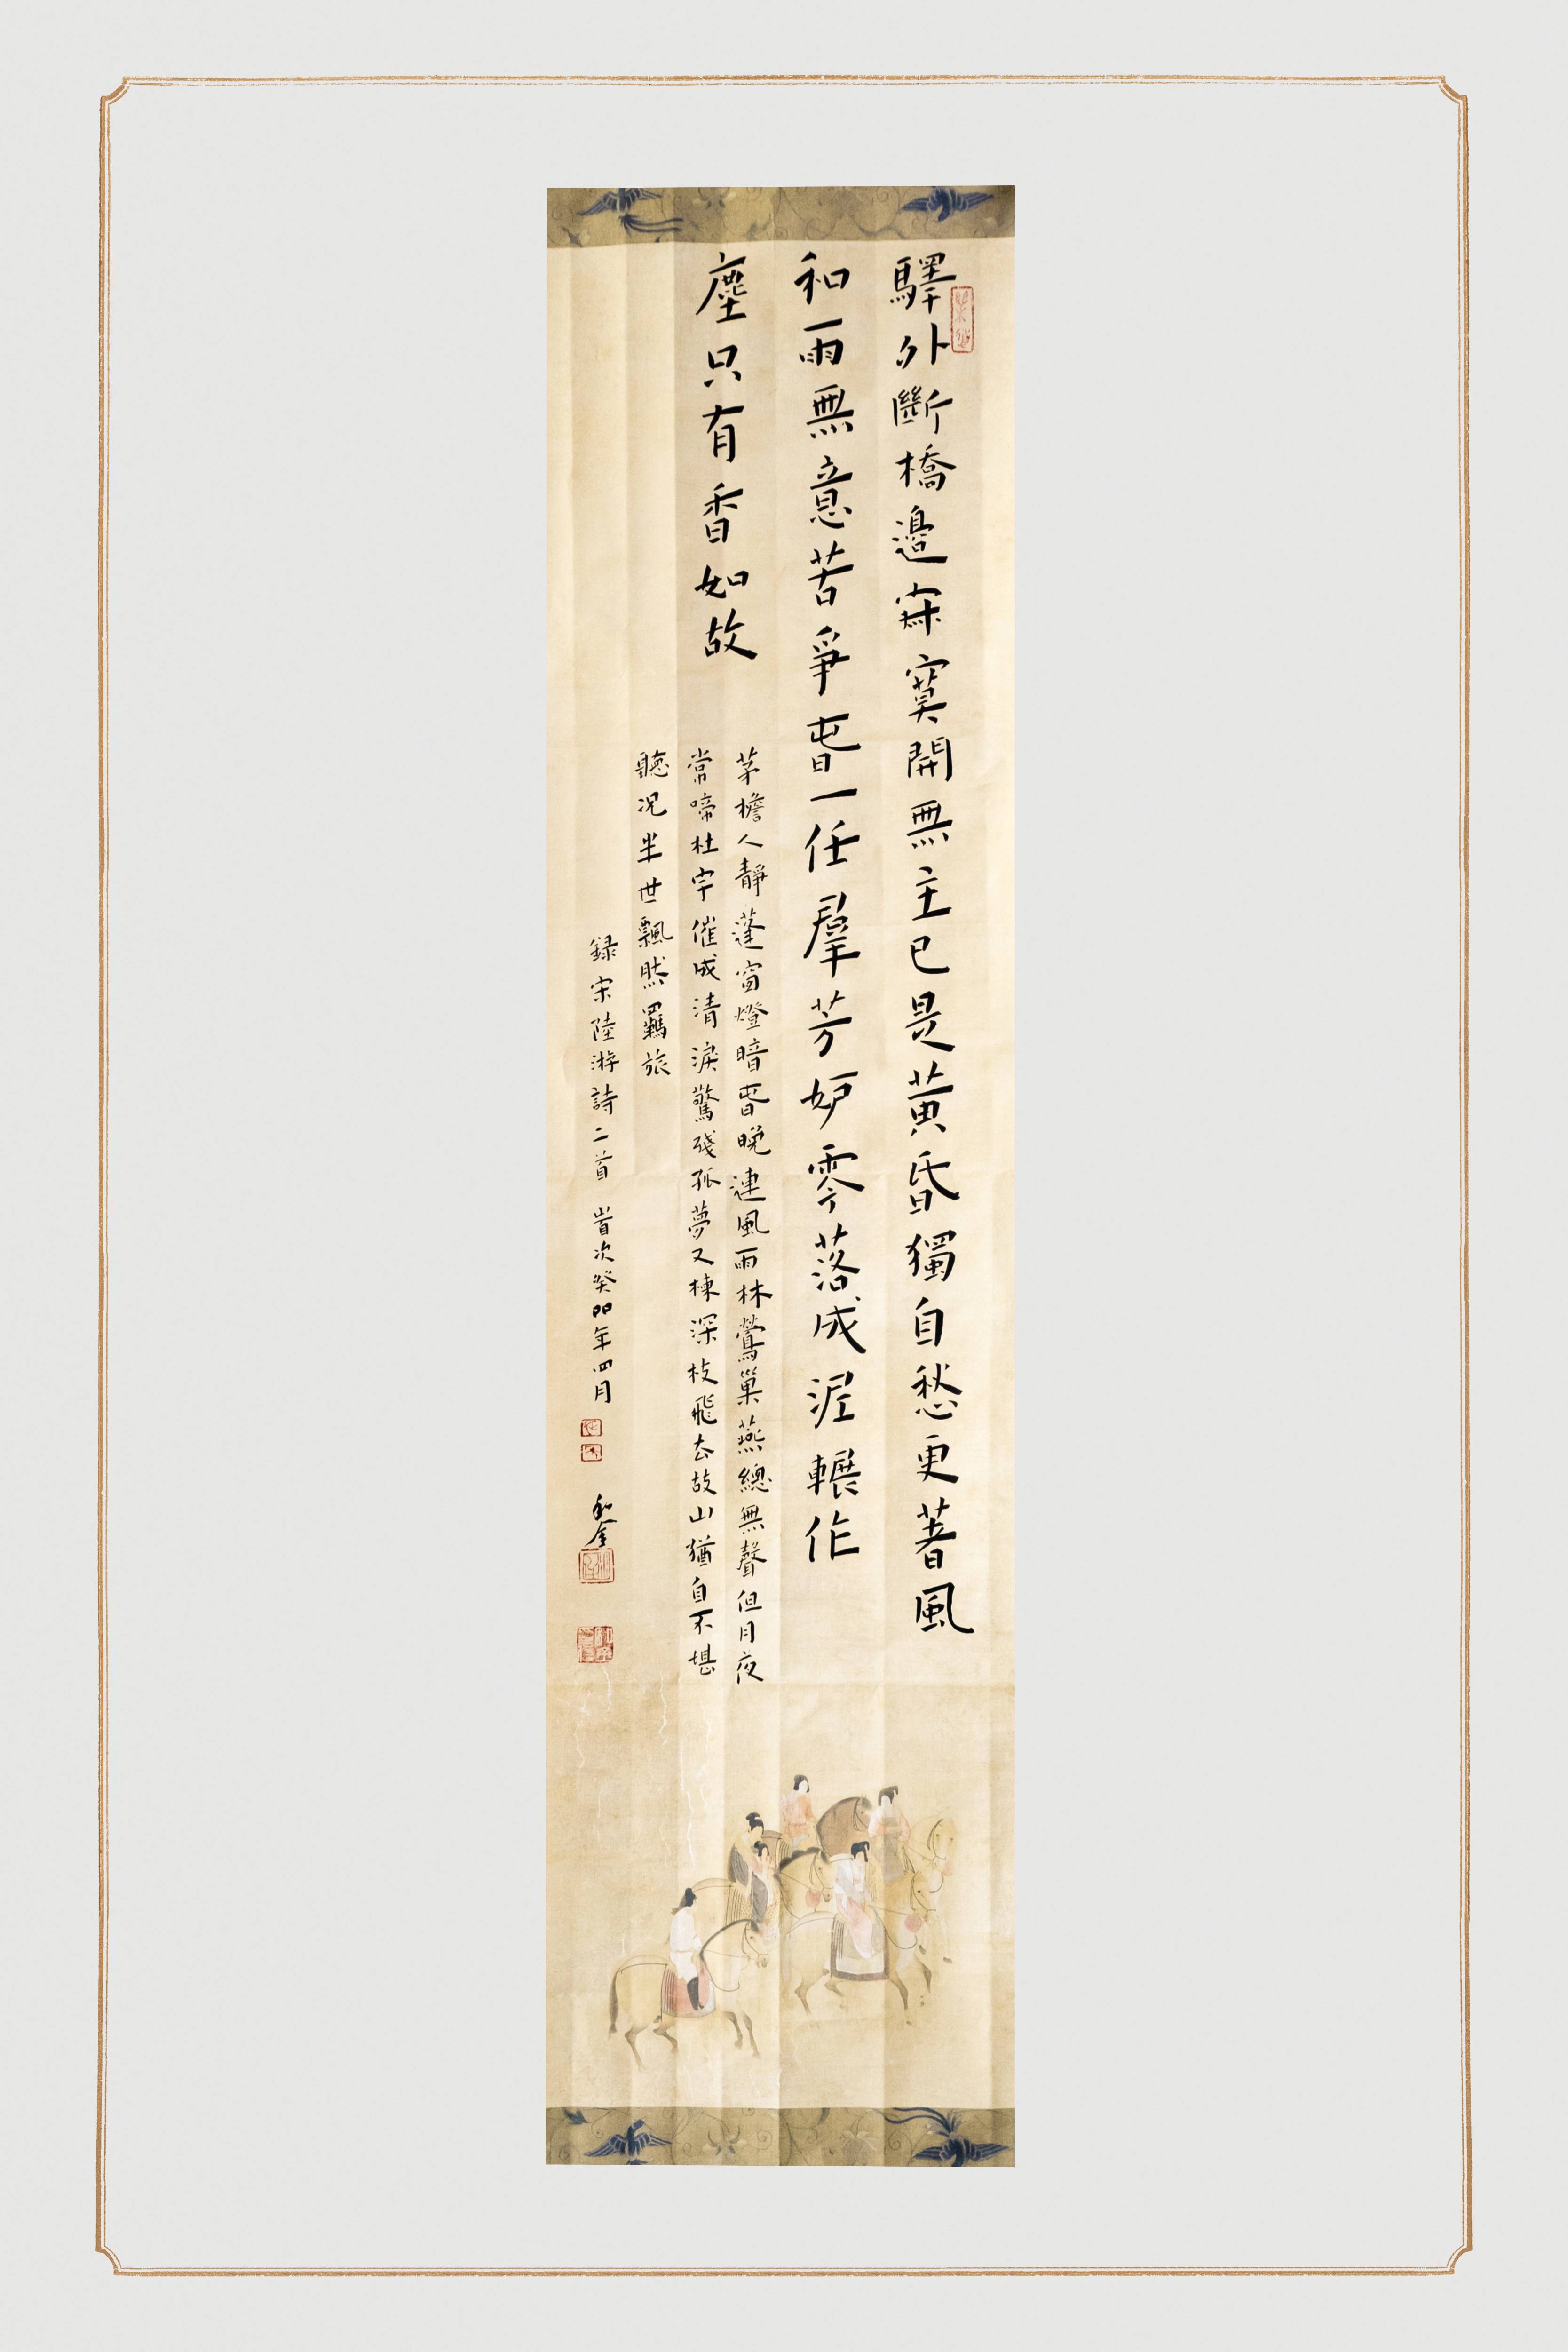 驛外斷橋邊寂寞開無主已是黃昏獨自愁更著風
和雨無意苦爭春一任羣芳妒零落成泥輾作
塵只有香如故
茅檐人靜蓬窗燈暗春晚連風雨林鶯巢燕總無聲但月夜
常啼杜宇催成清淚驚殘孤夢又揀深枝飛去故山猶自不堪
聽況半世飄然羈旅
録宋陸游詩二首 歲次癸卯年四月